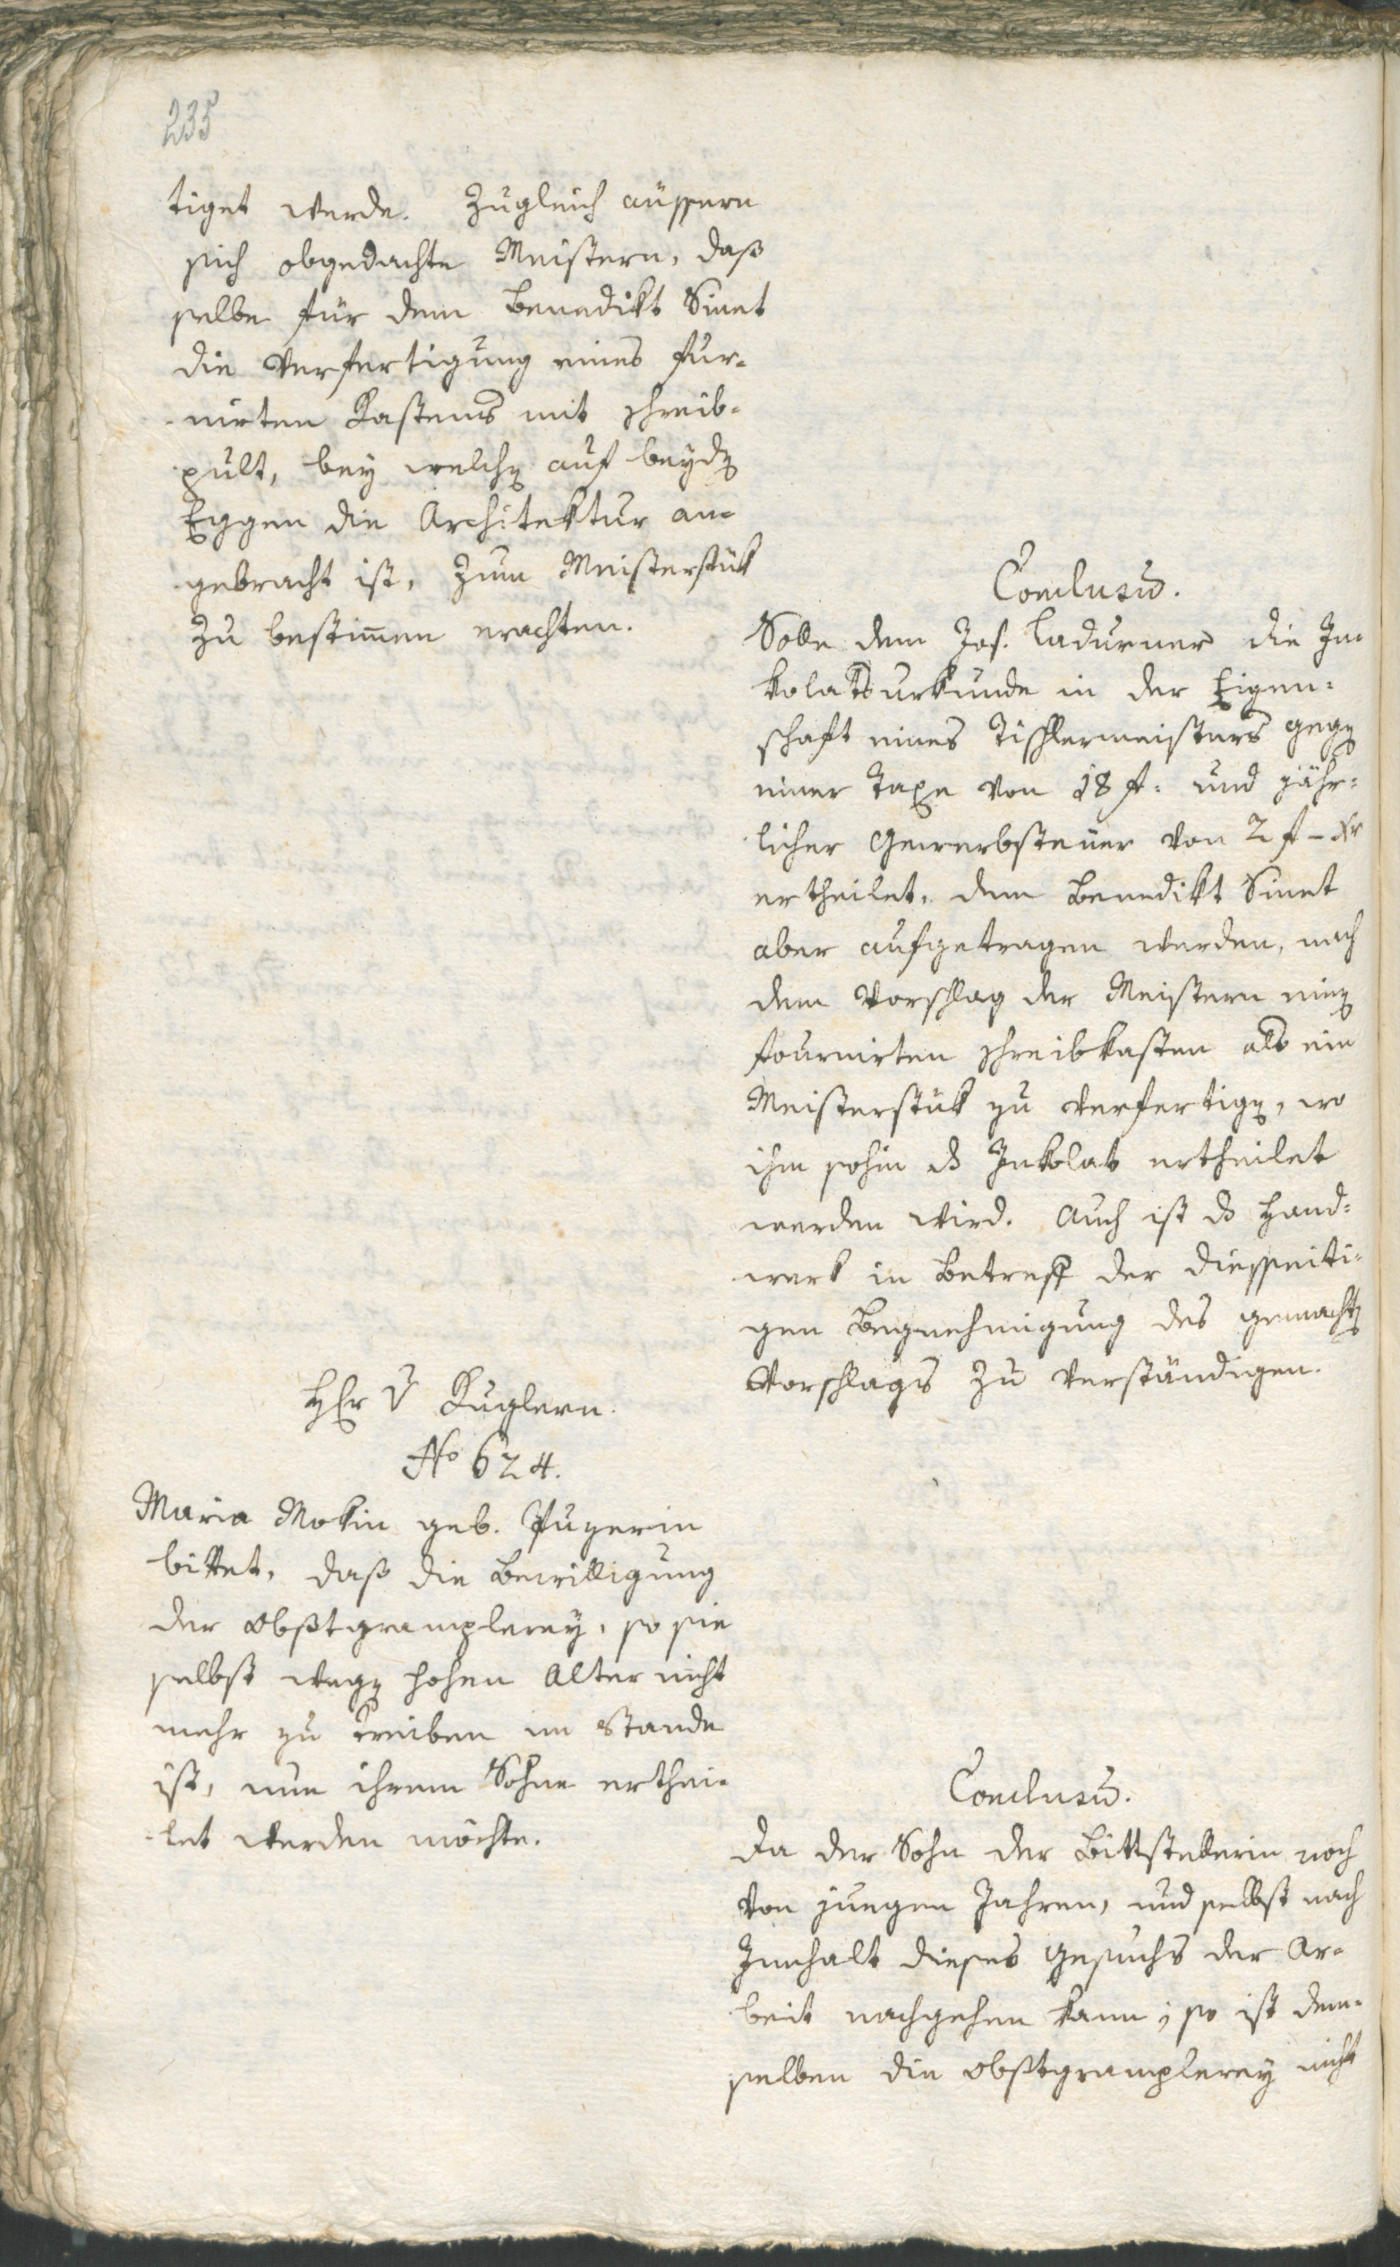 235
tiget werde. Zugleich äussern
sich obgedachte Meistern, daß
selbe für dem Benedikt Sinet
die Verfertigung eines fur-
nirten Kastens mit schreib-
pult, bey welchen auf beyden
Eggen die Architektur an-
gebracht ist, zum Meisterstük
zu bestim̄en erachten.
Conclusum.
Solle dem Jos. Ladurner die In-
kolatsurkunde in der Eigen-
schaft eines Tischlermeisters gegen
einer Taxe von 18 f: und jähr-
licher Gewerbsteuer von 2 f - xr
ertheilet, dem Benedikt Sinet
aber aufgetragen werden, nach
dem Vorschlag der Meistern einen
fournirten schreibkasten als ein
Meisterstük zu verfertigen, wo
ihm sohin das Inkolat ertheilet
werden wird. Auch ist das Hand-
werk in Betreff der diesseiti-
gen Begnehmigung des gemachten
Vorschlags zu verständigen.
Hr v Kuglern.
No 624.
Maria Mokin geb. Puzerin
bittet, daß die Bewilligung
der Obstgramplerey, so sie
selbst wegen hohen Alter nicht
mehr zu treiben im Stande
ist, nun ihrem Sohne erthei-
let werden möchte.
Conclusum.
Da der Sohn der Bittstellerin noch
von jungen Jahren, und selbst nach
Innhalt dieses Gesuchs der Ar-
beit nachgehen kann; so ist dem-
selben die Obstgramplerey nicht